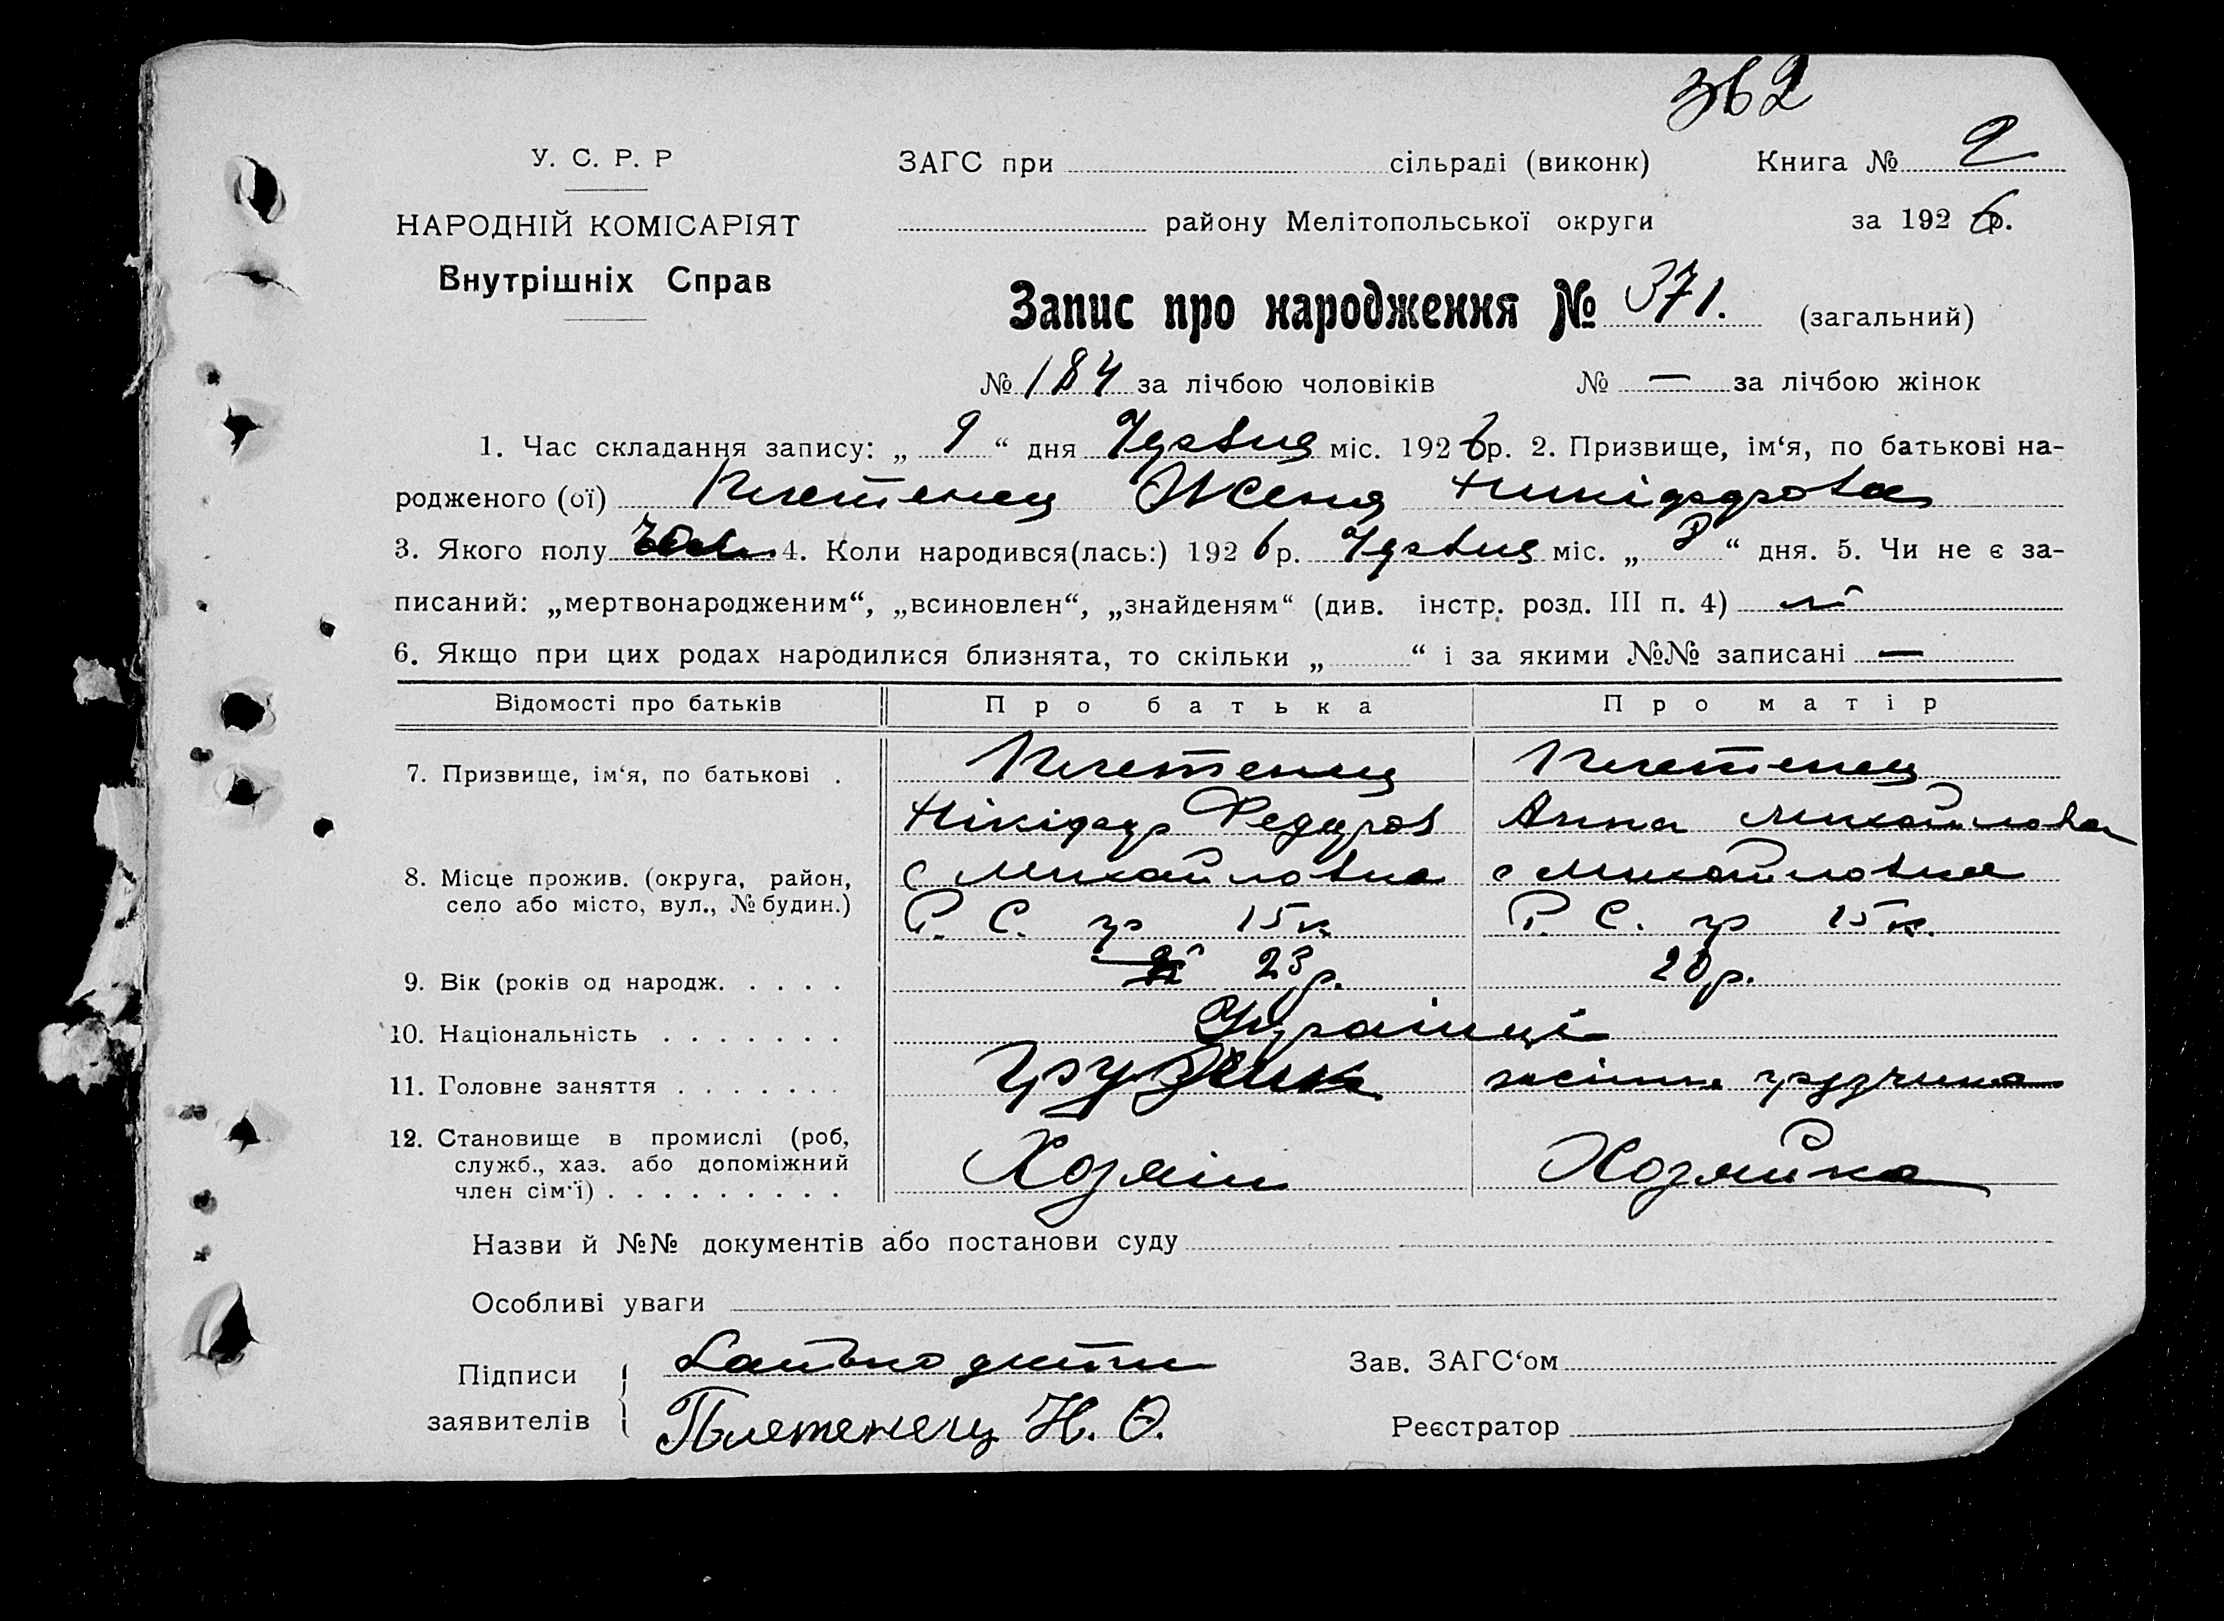 362
У. С. Р. Р
ЗАГС при сільраді (виконк) Книга № 2
НАРОДНІЙ КОМІСАРІЯТ
району Мелітопольської округи за 192 6 р.
Внутрішніх Справ
Запис про народження № 371. (загальний)
№ 184 за лічбою чоловіків № — за лічбою жінок
1. Час складання запису: „ 9 “ дня міс. 192 6 р. 2. Призвище, ім‘я, по батькові на-
родженого (ої) Плетенец Женя
3. Якого полу 4. Коли народився(лась:) 192 6 р. міс. „ 8 “ дня. 5. Чи не є за-
писаний: „мертвонародженим“, „всиновлен“, „знайденям“ (див. інстр. розд. III п. 4) ні
6. Якщо при цих родах народилися близнята, то скільки „ “ і за якими №№ записані —
Відомості про батьків Про батька Про матір
7. Призвище, ім‘я, по батькові . Плетенец Плетенец
Нікіфор Федоров Анна Михайлова
8. Місце прожив. (округа, район, с Михайловка с Михайловка
село або місто, вул., № будин.) Р. С. 15 к. Р. С. 15 к.
9. Вік (років од народж. . . . . 23 р. 20 р.
10. Національність . . . . . . . Українці
11. Головне заняття . . . . . . .
12. Становище в промислі (роб,
служб., хаз. або допоміжний Хозяін Хозяйка
член сім‘ї) . . . . . . . . .
Назви й №№ документів або постанови суду
Особливі уваги
Підписи Батько дитини Зав. ЗАГС‘ом
заявителів Плетенец Н. Ф. Реєстратор